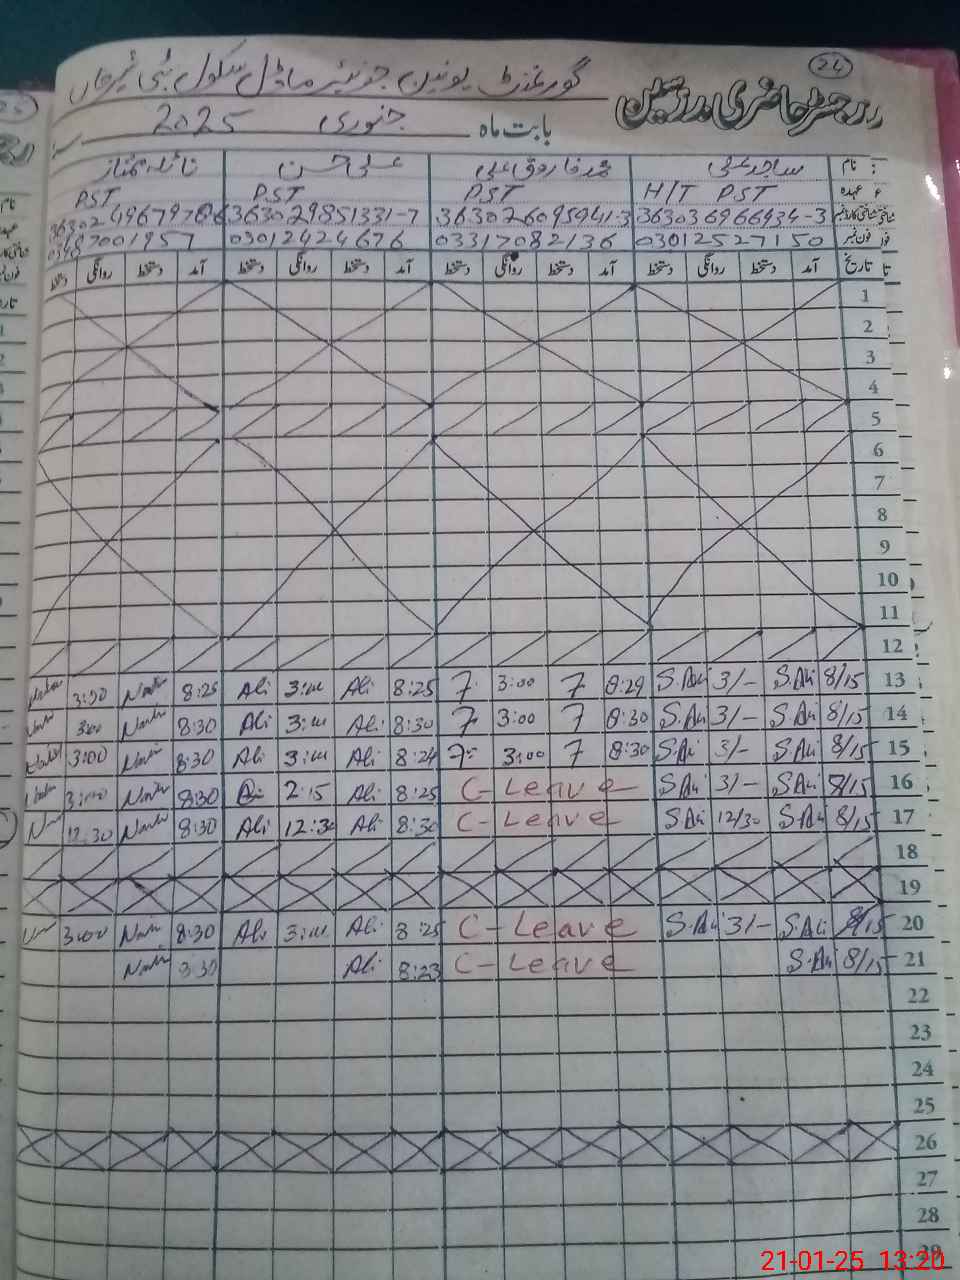 24
رجسٹر حاضری مدرسین
گورنمنٹ یونین جونیئر ماڈل سکول
بابت ماہ جنوری 2025
نام ساجد علی محمد فاروق علی علی حسن نائلہ ممتاز
عہدہ H/T PST PST PST PST
363036966934-3 363026095941-3 363029851331-7
03012527150 03317082136 03012424676
تاریخ آمد دستخط روانگی دستخط آمد دستخط روانگی دستخط آمد دستخط روانگی دستخط آمد دستخط روانگی دستخط
1
2
3
4
5
6
7
8
9
10
11
12
13 8/15 S.Ali 3/- S.Ali 8:29 7 3:00 7 8:25 Ali 3:00 Ali 8:25 3:00
14 8/15 S.Ali 3/- S.Ali 8:30 7 3:00 7 8:30 Ali 3:00 Ali 8:30 3:00
15 8/15 S.Ali 3/- S.Ali 8:30 7 3:00 7 8:24 Ali 3:00 Ali 8:30 3:00
16 8/15 S.Ali 3/- S.Ali C-Leave 8:25 Ali 2:15 8:30 3:00
17 8/15 S.Ali 12/30 S.Ali C-Leave 8:30 Ali 12:30 Ali 8:30 12:30
18
19
20 8/15 S.Ali 3/- S.Ali C-Leave 8:25 Ali 3:00 Ali 8:30 3:00
21 8/15 S.Ali C-Leave 8:23 Ali 8:30
22
23
24
25
26
27
28
29
21-01-25 13:20